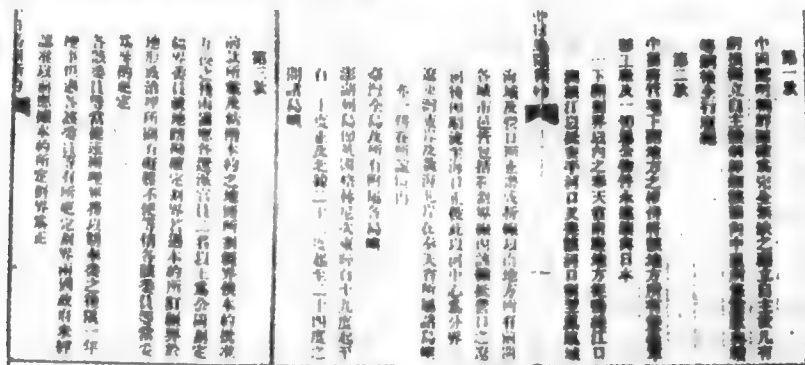 第一款
中國認明朝鮮國確為完全無缺之獨立自主故凡有
虧損獨立自主體制即如該國向中國所修貢獻典禮等
嗣後全行廢絕
第二款
中國將管理下開地方之權併將該地方所有堡壘軍
器工廠及一切屬公物件永遠讓與日本
一下開劃界以內之奉天省南邊地方從鴨綠江口
溯該江以抵安平河口又從該河口劃至鳳凰城
海城及營口而止畫成折線以南地方所有前開
各城市邑皆包括在劃界線內該線抵營口之遼
河後即順流至海口止彼此以河中心為分界
遼東灣東岸及黃海北岸在奉天省所屬諸島嶼
亦一併在所讓境內
臺灣全島及所有附屬各島嶼
澎湖列島即英國格林尼次東經百十九度起至
百二十度止及北緯二十三度起至二十四度之
間諸島嶼
第三款
前款所載及粘附本約之地圖所劃疆界俟本約批准
互換之後兩國應各選派官員二名以上為公同劃定
疆界委員就地踏勘確定劃界若遇本約所訂疆界於
地形或治理所關有礙難不便等情各該委員等當妥
為參酌更定
各該委員等當從速辦理界務以期奉委之後限一年
竣事但遇各該委員等有所更定劃界兩國政府未經
認准以前應據本約所定劃界為正